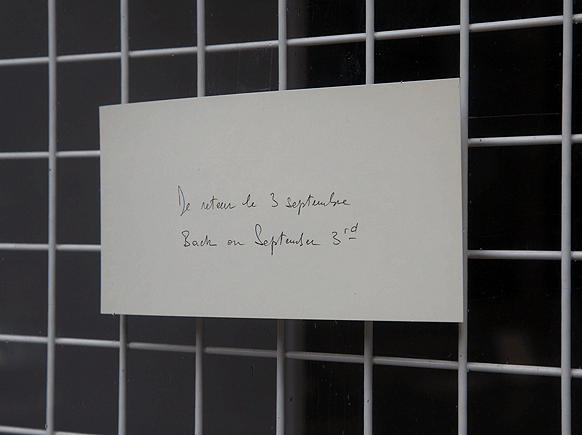 De retour le 3 septembre
Back on September 3rd